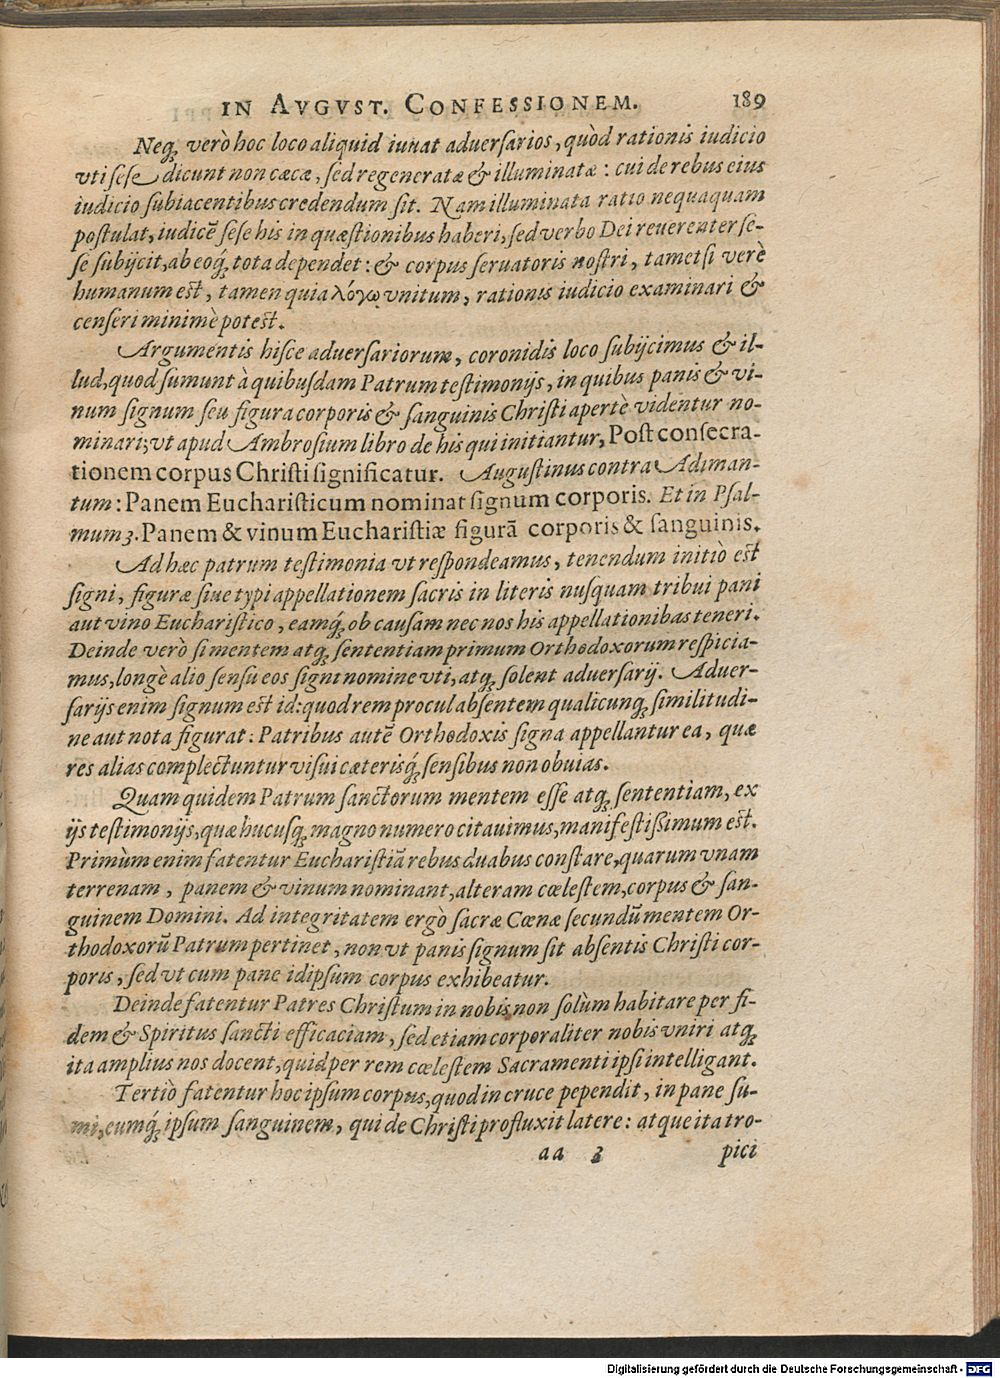 IN AVGVST. CONFESSIONEM. 189
Neq́; verò hoc loco aliquid iuuat aduersarios, quòd rationis iudicio
vti sese dicunt non cæcæ, sed regeneratæ & illuminatæ: cui de rebus eius
iudicio subiacentibus credendum sit. Nam illuminata ratio nequaquam
postulat, iudicē sese his in quæstionibus haberi, sed verbo Dei reuerenter se-
se subijcit, ab eoq́; tota dependet: & corpus seruatoris nostri, tametsi verè
humanum est, tamen quia λόγῳ vnitum, rationis iudicio examinari &
censeri minimè potest.
Argumentis hisce aduersariorum, coronidis loco subijcimus & il-
lud, quod sumunt à quibusdam Patrum testimonijs, in quibus panis & vi-
num signum seu figura corporis & sanguinis Christi apertè videntur no-
minari; vt apud Ambrosium libro de his qui initiantur, Post consecra-
tionem corpus Christi significatur. Augustinus contra Adiman-
tum: Panem Eucharisticum nominat signum corporis. Et in Psal-
mum 3. Panem & vinum Eucharistiæ figurā corporis & sanguinis.
Ad hæc patrum testimonia vt respondeamus, tenendum initiò est
signi, figuræ siue typi appellationem sacris in literis nusquam tribui pani
aut vino Eucharistico, eamq́; ob causam nec nos his appellationibas teneri.
Deinde verò si mentem atq; sententiam primum Orthodoxorum respicia-
mus, longè alio sensu eos signi nomine vti, atq; solent aduersarij. Aduer-
sarijs enim signum est id: quod rem procul absentem qualicunq; similitudi-
ne aut nota figurat: Patribus autē Orthodoxis signa appellantur ea, quæ
res alias complectuntur visui cæterisq́; sensibus non obuias.
Quam quidem Patrum sanctorum mentem esse atq; sententiam, ex
ijs testimonijs, quæ hucusq; magno numero citauimus, manifestissimum est.
Primùm enim fatentur Eucharistiā rebus duabus constare, quarum vnam
terrenam, panem & vinum nominant, alteram cœlestem, corpus & san-
guinem Domini. Ad integritatem ergò sacræ Cœnæ secundū mentem Or-
thodoxorū Patrum pertinet, non vt panis signum sit absentis Christi cor-
poris, sed vt cum pane id ipsum corpus exhibeatur.
Deinde fatentur Patres Christum in nobis non solùm habitare per fi-
dem & Spiritus sancti efficaciam, sed etiam corporaliter nobis vniri atq;
ita amplius nos docent, quid per rem cœlestem Sacramenti ipsi intelligant.
Tertiò fatentur hoc ipsum corpus, quod in cruce pependit, in pane su-
mi, eumq́; ipsum sanguinem, qui de Christi profluxit latere: atque ita tro-
aa 3 pici
Digitalisierung gefördert durch die Deutsche Forschungsgemeinschaft - DFG